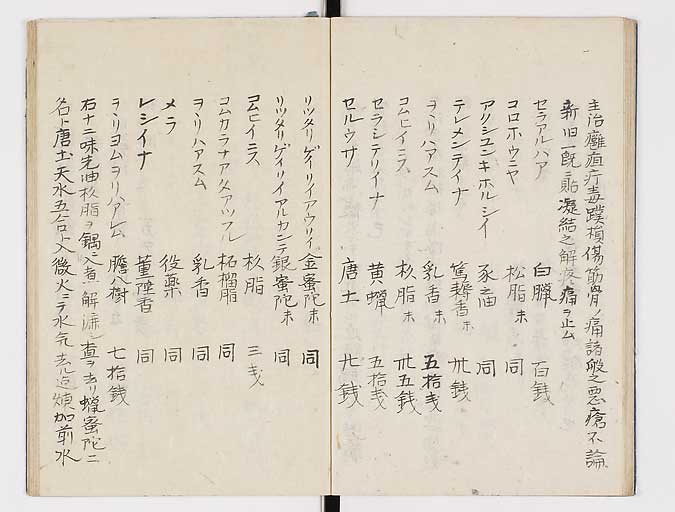 主治癰疽疔毒蹼損傷筋骨ノ痛諸般之悪瘡不論
新旧一既ニ貼凝結之解疼痛ヲ止ム
セラアルハア 白臘 百銭
コロホウニヤ 松脂末 同
アクシユンキホルシイ 豕油 同
テレメンテイナ 篤耨香末 卅銭
ヲヽリハアスム 乳香末 五拾戔
コムヒイニス 杦脂末 卅五銭
セラシテリイナ 黄蝋 五拾戔
セルウサ 唐土 卅銭
リツタリゲイリイアウリイ 金蜜陀末 同
リツタリゲイリイアルカンテ 銀蜜陀末 同
コムヒイニス 杦脂 三戔
コムカラナアタアツフル 柘榴脂 同
ヲヽリハアスム 乳香 同
メラ 役薬 同
レシイナ 薫陸香 同
ヲヽリヨムヲリハアレム 膽八樹 七拾銭
右十二味先油杦脂ヲ鍋ニ入煮解漉シ査ヲ去リ蝋蜜陀ニ
名ト唐土天水五合ト入微火ニテ水気去ル迄煉加前水